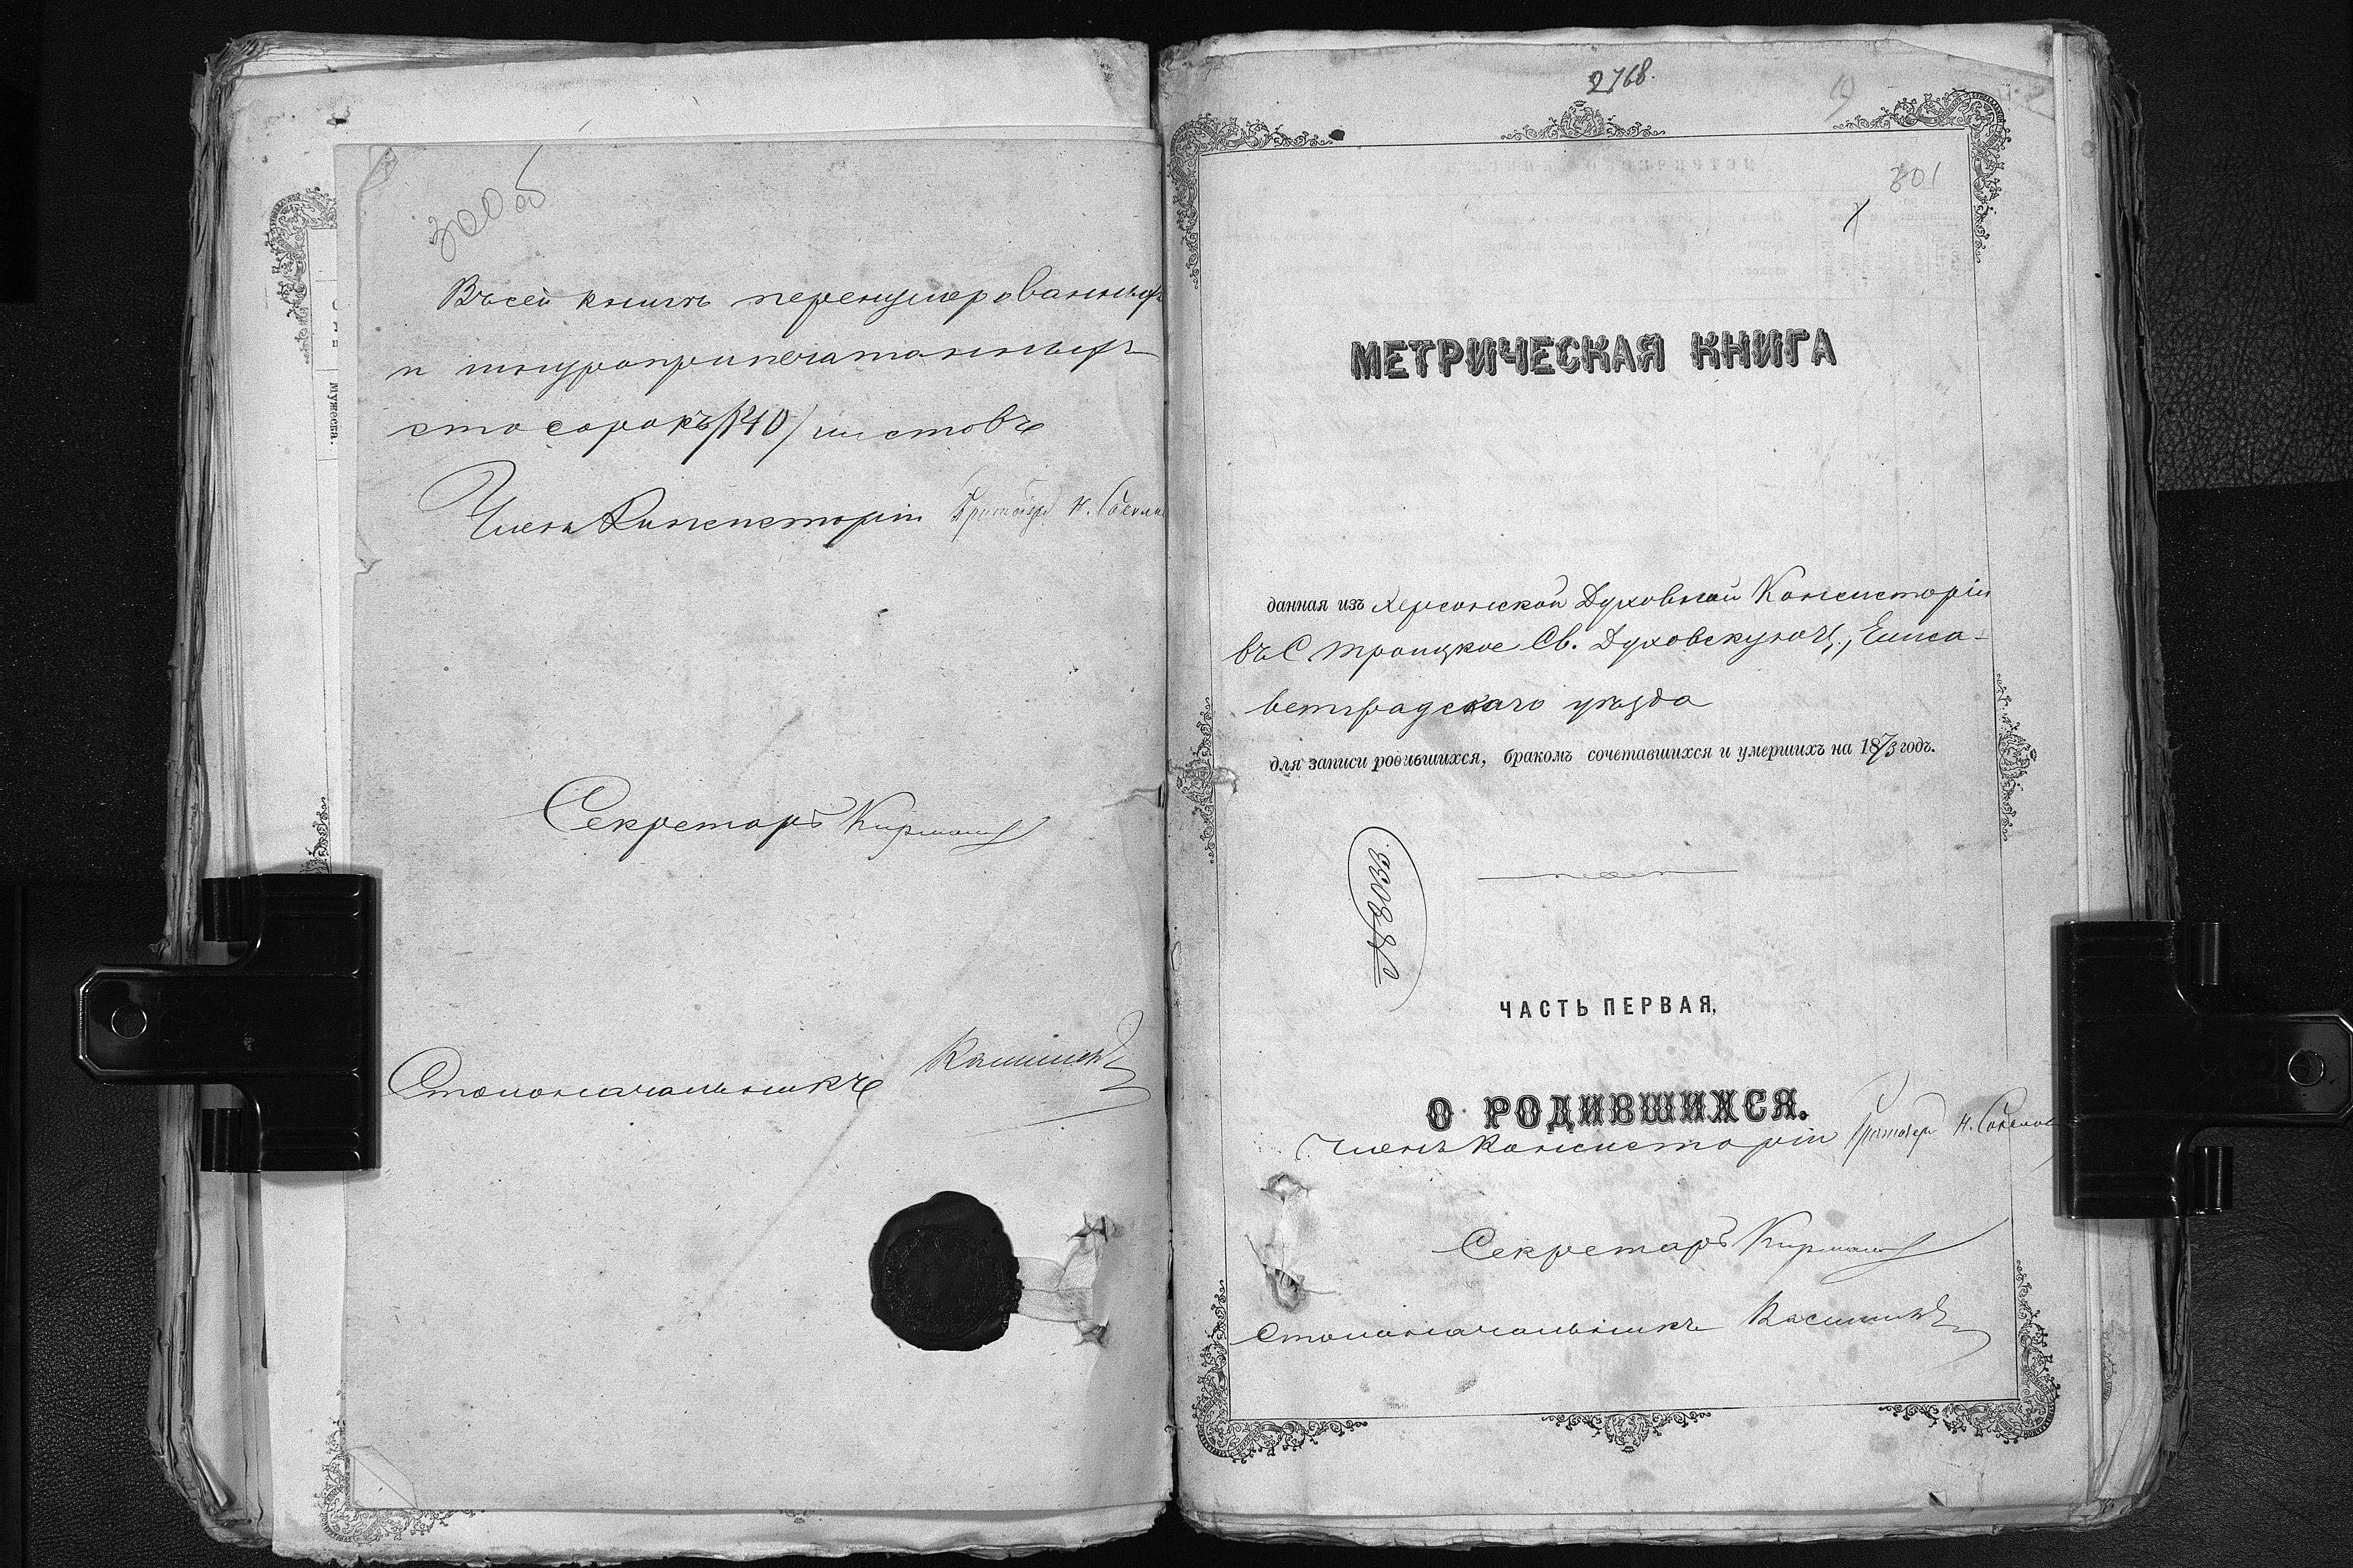 300 об
Въ сей книгѣ перенумерованныхъ
и шнуроприпечатанныхъ
сто сорокъ /140/ листовъ
Членъ Консисторіи
Секретарь
Столоначальникъ
мужеска.
2768.
301
МЕТРИЧЕСКАЯ КНИГА
данная изъ Херсонской Духовной Консисторіи
въ С Троицкое Св. Духовскую ц., Елиса-
ветградскаго уѣзда
для записи родившихся, бракомъ сочетавшихся и умершихъ на 1873 годъ.
№ 8033
ЧАСТЬ ПЕРВАЯ,
О РОДИВШИХСЯ.
Членъ Консисторіи
Секретарь
Столоначальникъ